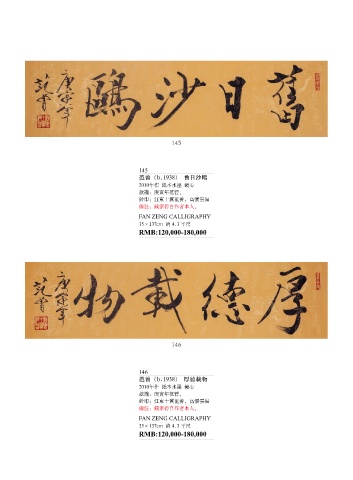 舊日沙鷗
庚寅年
范曾
145
145
范曾（b.1938） 舊日沙鷗
2010年作 紙本水墨 鏡心
款識：庚寅年范曾。
鈐印：江東十翼范曾、
備註：鏡框背自作者本人。
FAN ZENG CALLIGRAPHY
35×137cm 約 4.3 平尺
RMB:120,000-180,000
厚德載物
庚寅年
范曾
146
146
范曾（b.1938） 厚德載物
2010年作 紙本水墨 鏡心
款識：庚寅年范曾。
鈐印：江東十翼范曾、
備註：鏡框背自作者本人。
FAN ZENG CALLIGRAPHY
35×137cm 約 4.3 平尺
RMB:120,000-180,000